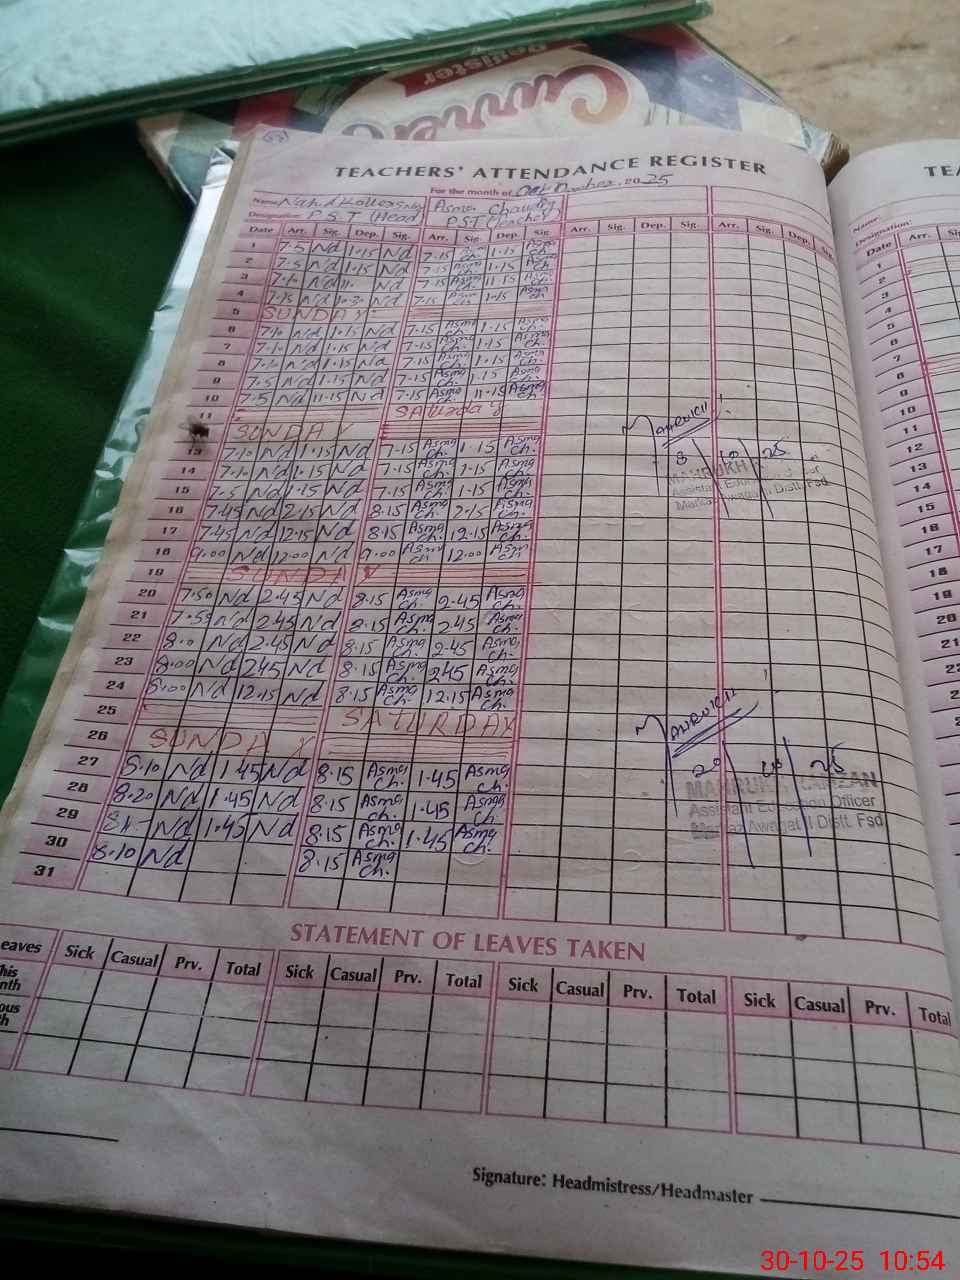 Register
TEACHERS' ATTENDANCE REGISTER
For the month of 2025
Name Asma Chaudry
Designation: P.S.T (Head) PST (Teacher)
Date Arr. Sig. Dep. Sig. Arr. Sig. Dep. Sig. Arr. Sig. Dep. Sig. Arr. Sig. Dep. Sig.
1 7.5 Nd 1.15 Nd 7.15 1.15 Asma ch.
2 7.5 Nd 1.15 Nd 7.15 Asma ch. 1.15 Asma ch.
3 7.10 Nd 11. Nd 7.15 Asma ch. 11.15 Asma ch.
4 7.15 Nd Nd 7.15 1.15 Asma ch.
5 SUNDAY
6 7.10 Nd 1.15 Nd 7.15 Asma ch. 1.15 Asma ch.
7 7.10 Nd 1.15 Nd 7.15 Asma ch. 1.15 Asma ch.
8 7.10 Nd 1.15 Nd 7.15 Asma ch. 1.15 Asma ch.
9 7.5 Nd 1.15 Nd 7.15 Asma ch. 1.15 Asma ch.
10 7.5 Nd 11.15 Nd 7.15 Asma ch. 11.15 Asma ch.
11 Saturday
SUNDAY
13 7.10 Nd 1.15 Nd 7.15 Asma ch. 1.15 Asma ch.
14 7.10 Nd 1.15 Nd 7.15 Asma ch. 1.15 Asma ch.
15 7.5 Nd 1.15 Nd 7.15 Asma ch. 1.15 Asma ch.
16 7.45 Nd 2.15 Nd 8.15 Asma ch. 2.15 Asma ch.
17 7.45 Nd 12.15 Nd 8.15 Asma ch. 12.15 Asma ch.
18 9.00 Nd 12.00 Nd 9.00 Asma ch. 12.00 Asma ch.
19 SUNDAY
20 7.50 Nd 2.45 Nd 8.15 Asma ch. 2.45 Asma ch.
21 7.55 Nd 2.45 Nd 8.15 Asma ch. 2.45 Asma ch.
22 8.0 Nd 2.45 Nd 8.15 Asma ch. 2.45 Asma ch.
23 8.00 Nd 2.45 Nd 8.15 Asma ch. 2.45 Asma ch.
24 8.00 Nd 12.15 Nd 8.15 Asma ch. 12.15 Asma ch.
25 SATURDAY
26 SUNDAY
27 8.10 Nd 1.45 Nd 8.15 Asma ch. 1.45 Asma ch.
28 8.20 Nd 1.45 Nd 8.15 Asma ch. 1.45 Asma ch.
29 Nd 1.45 Nd 8.15 Asma ch. 1.45 Asma ch.
30 8.10 Nd 8.15 Asma ch.
31
MAHRUKH
8 10 25
MAHRUKH
Assistant
Markaz Awagat II Distt. Fsd.
MAHRUKH
29 10 25
MAHRUKH RAMZAN
Assistant Education Officer
Markaz Awagat II Distt. Fsd
STATEMENT OF LEAVES TAKEN
eaves Sick Casual Prv. Total Sick Casual Prv. Total Sick Casual Prv. Total Sick Casual Prv. Total
his
nth
ous
th
Signature: Headmistress/Headmaster
TEA
Name:
Designation:
Date Arr. S
1
2
3
4
5
6
7
8
9
10
11
12
13
14
15
16
17
18
19
20
21
22
23
24
25
26
27
28
29
30
31
30-10-25 10:54